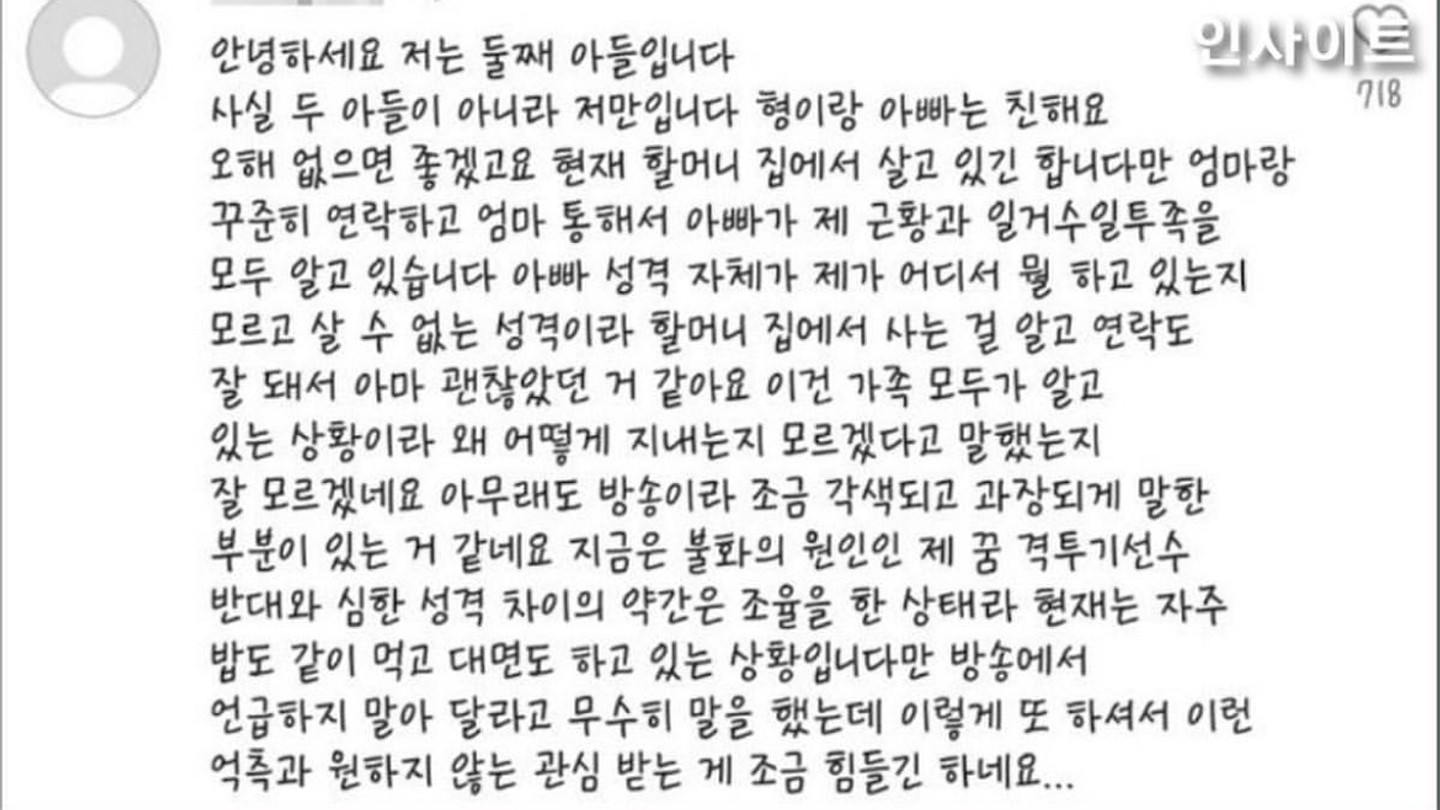 인사이트
718
안녕하세요 저는 둘째 아들입니다
사실 두 아들이 아니라 저만입니다 형이랑 아빠는 친해요
오해 없으면 좋겠고요 현재 할머니 집에서 살고 있긴 합니다만 엄마랑
꾸준히 연락하고 엄마 통해서 아빠가 제 근황과 일거수일투족을
모두 알고 있습니다 아빠 성격 자체가 제가 어디서 뭘 하고 있는지
모르고 살 수 없는 성격이라 할머니 집에서 사는 걸 알고 연락도
잘 돼서 아마 괜찮았던 거 같아요 이건 가족 모두가 알고
있는 상황이라 왜 어떻게 지내는지 모르겠다고 말했는지
잘 모르겠네요 아무래도 방송이라 조금 각색되고 과장되게 말한
부분이 있는 거 같네요 지금은 불화의 원인인 제 꿈 격투기선수
반대와 심한 성격 차이의 약간은 조율을 한 상태라 현재는 자주
밥도 같이 먹고 대면도 하고 있는 상황입니다만 방송에서
언급하지 말아 달라고 무수히 말을 했는데 이렇게 또 하셔서 이런
억측과 원하지 않는 관심 받는 게 조금 힘들긴 하네요...